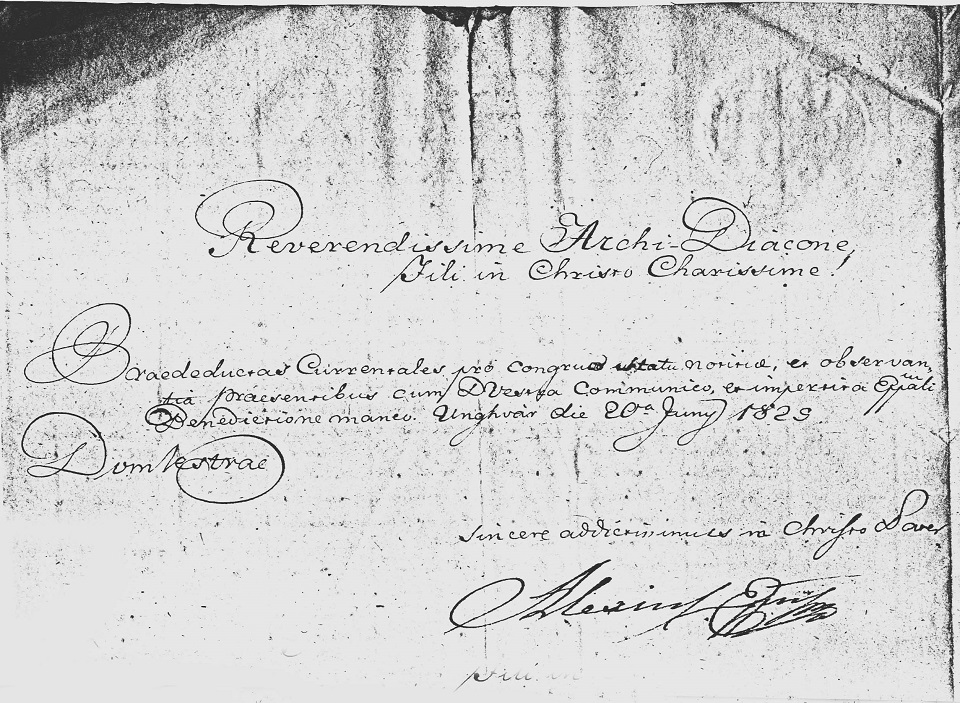 Reverendissime Archi-Diacone,
Fili in Christo Charissime!
Praedeductas Currentales pro congrua notitia, et observan
tia praesentibus cum DVestra Communico, et impertita Eppali
Benedictione maneo. Unghvár die 20a Juny 1829
Dom Vestrae
sincere addictissimus in Christo Pater
Alexius Eppus